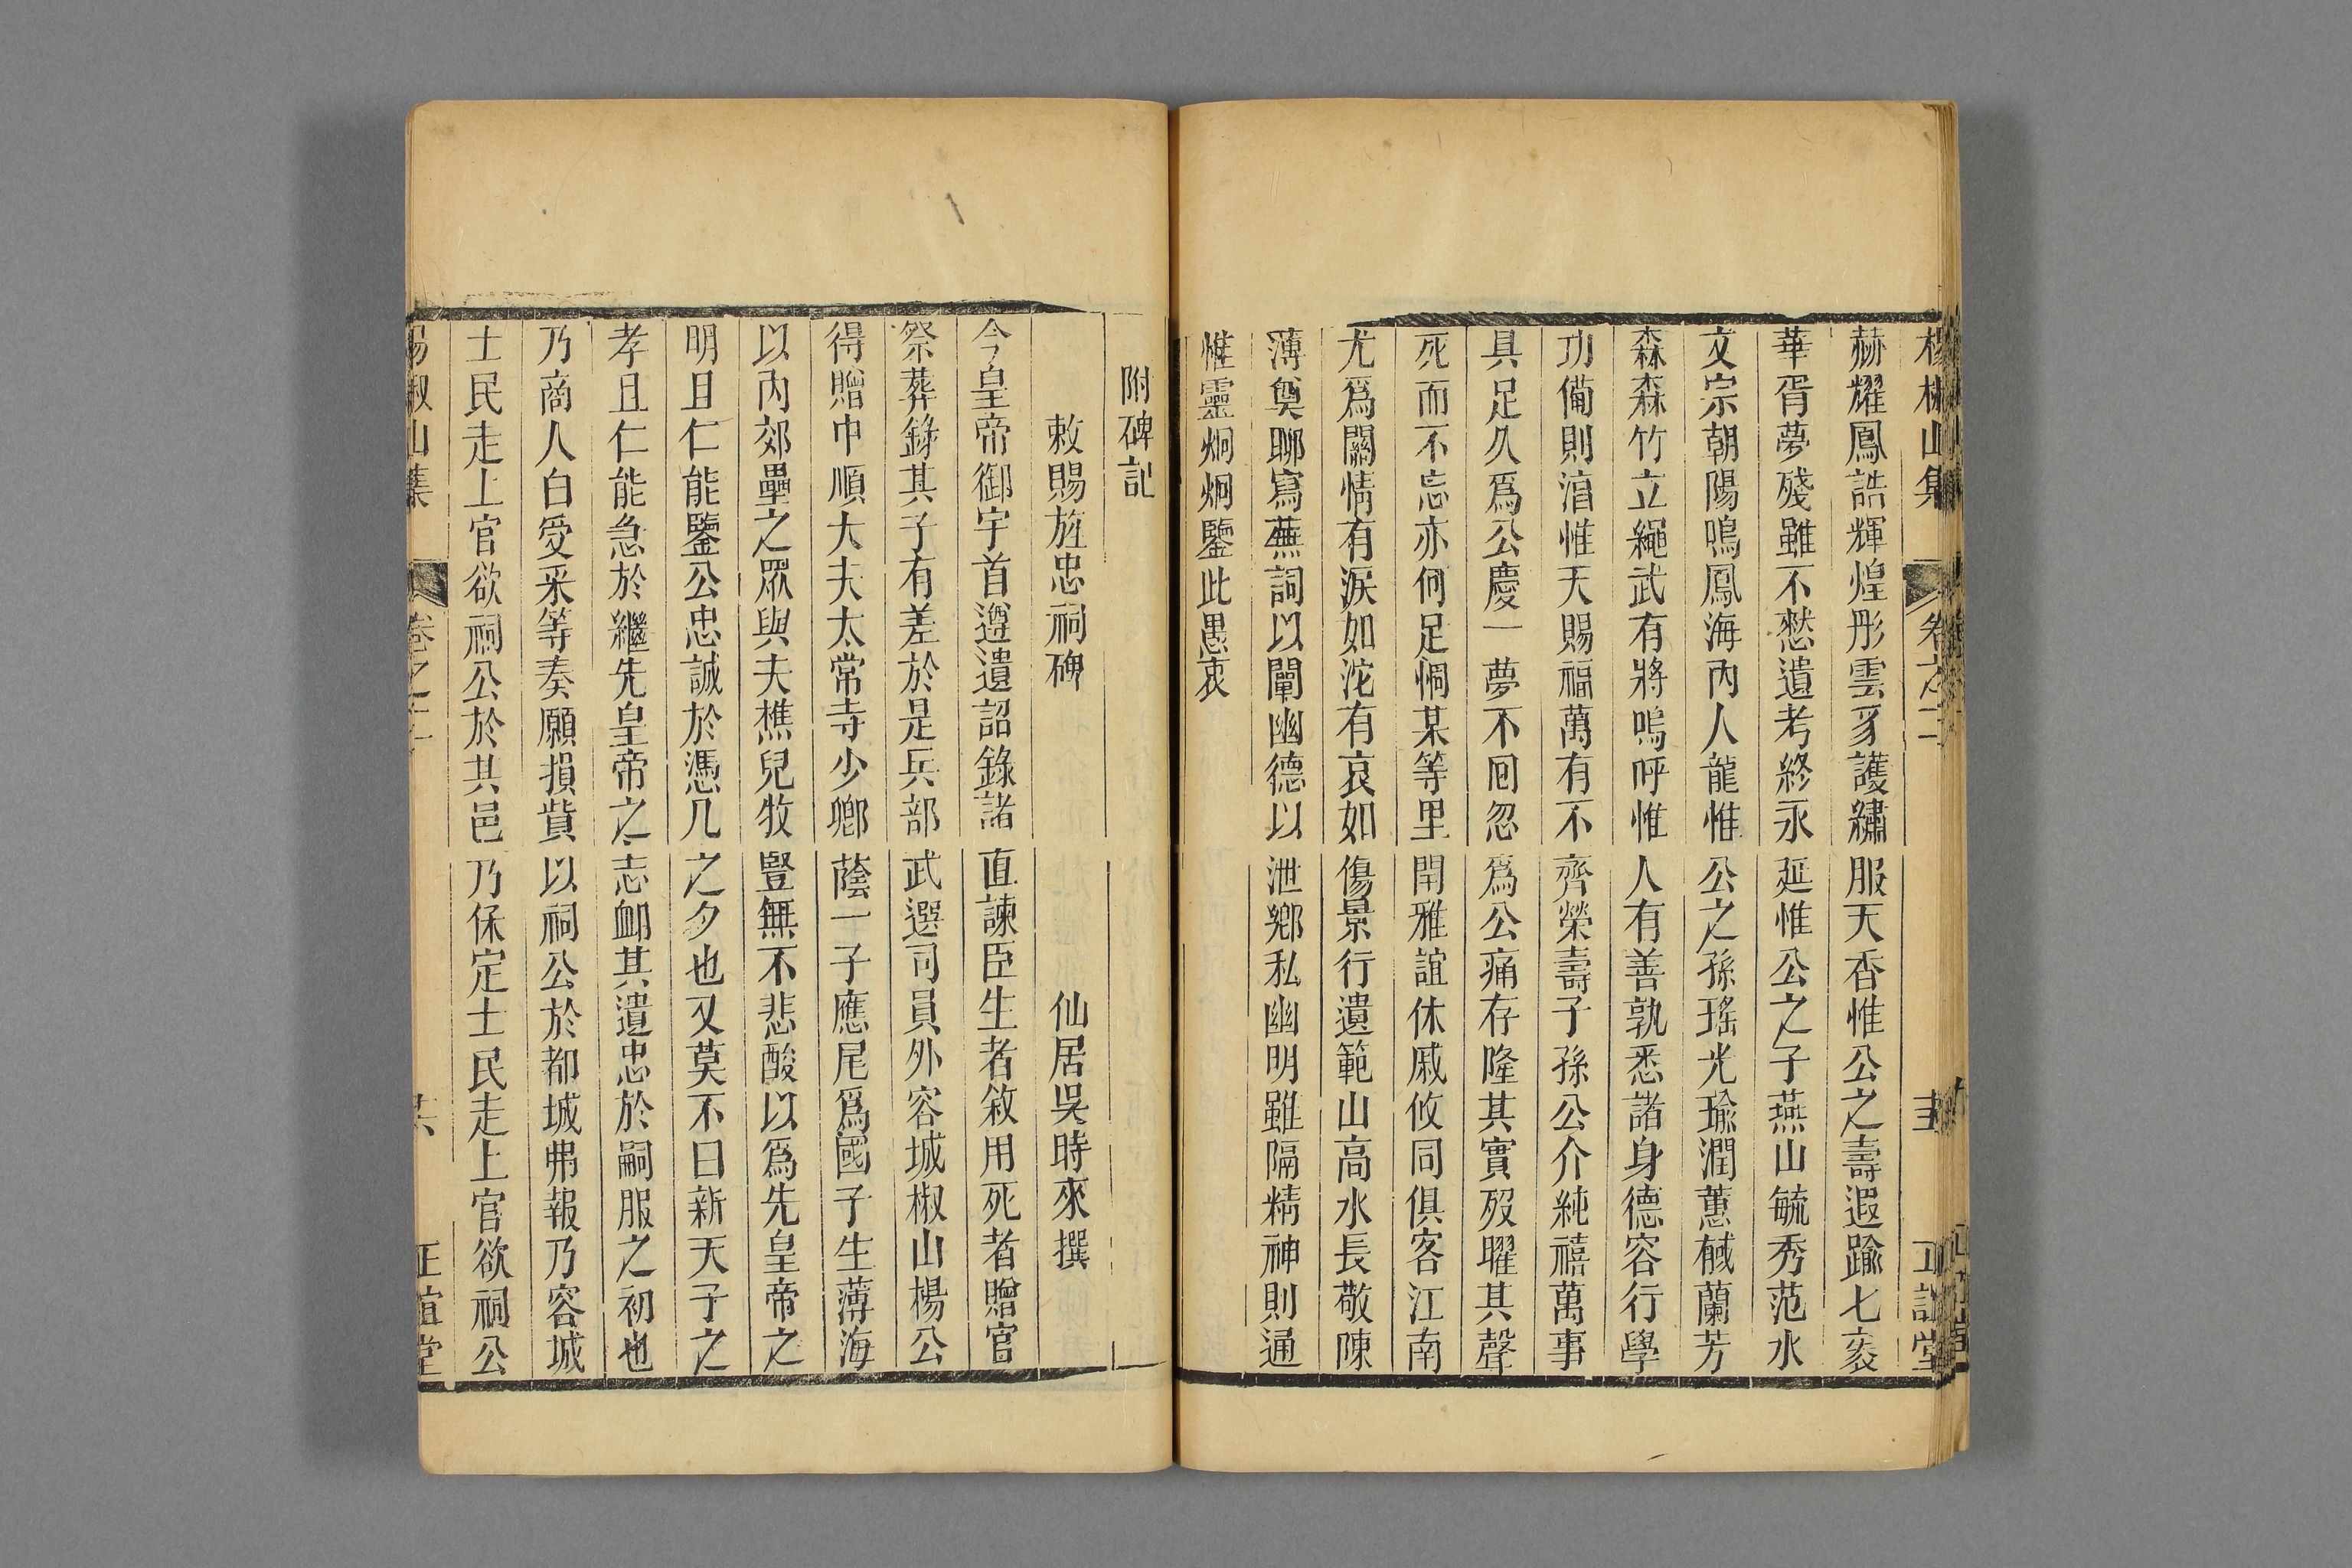 赫耀鳳誥輝煌彤雲豸護繡服天香惟公之壽遐踰七袠
華胥夢殘雖不憖遺考終永延惟公之子燕山毓秀范水
文宗朝陽鳴鳳海內人龍惟公之孫瑤光瑜潤蕙棫蘭芳
森森竹立繩武有將嗚呼惟人有善孰悉諸身德容行學
功備則湻惟天賜福萬有不齊榮壽子孫公介純禧萬事
具足久爲公慶一夢不囘忽爲公痛存隆其實歿曜其聲
死而不忘亦何足恫某等里閈雅誼休戚攸同俱客江南
尤爲關情有淚如沱有哀如傷景行遺範山高水長敬陳
薄奠聊寫蕪詞以闡幽德以泄鄉私幽明雖隔精神則通
惟靈炯炯鑒此愚哀
附碑記
敕賜旌忠祠碑 仙居吳時來撰
今皇帝御宇首遵遺詔錄諸直諫臣生者敘用死者贈官
祭葬錄其子有差於是兵部武選司員外容城椒山楊公
得贈中順大夫太常寺少卿蔭一子應尾爲國子生薄海
以內郊壘之眾與夫樵兒牧豎無不悲酸以爲先皇帝之
明且仁能鑒公忠誠於憑几之夕也又莫不曰新天子之
孝且仁能急於繼先皇帝之志卹其遺忠於嗣服之初也
乃商人白受采等奏願損貲以祠公於都城弗報乃容城
士民走上官欲祠公於其邑乃保定士民走上官欲祠公
椒山集 卷之二 正誼堂